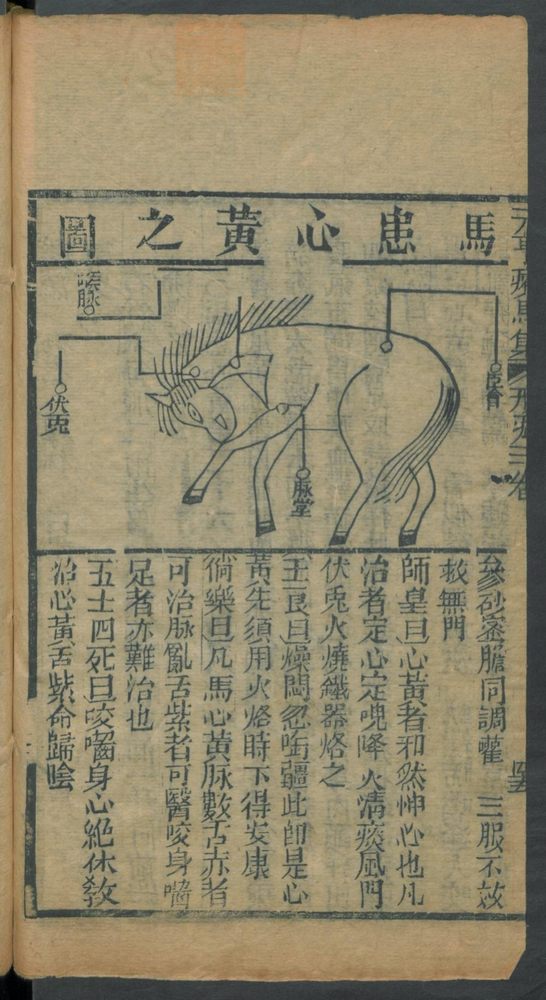 馬患心黃之圖
百會
脉堂
喉脉
伏兎
參砂蜜膽同調灌 三服不效
救無門
師皇曰心黃者邪然忡心也凡
治者定心定魄降火清痰風門
伏兎火燒鐵器烙之
王良曰燥悶忽咬疆此即是心
黃先須用火烙時下得安康
徜樂曰凡馬心黃脉數舌赤者
可治脉亂舌紫者可醫咬身嚙
足者亦難治也
五十四死曰咬嚙身心絶休教
治心黃舌紫命歸陰